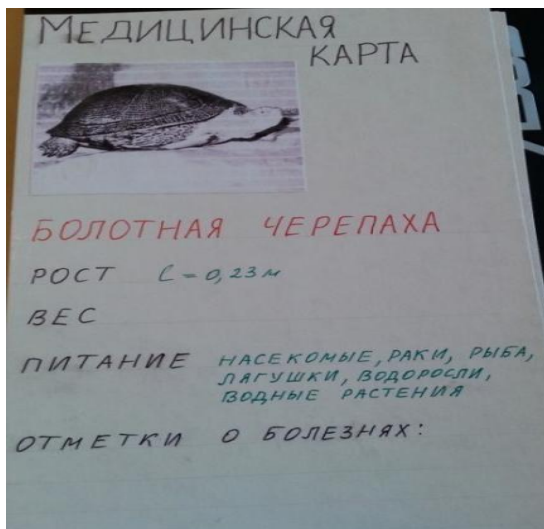 МЕДИЦИНСКАЯ
КАРТА
БОЛОТНАЯ ЧЕРЕПАХА
РОСТ ℓ = 0,23 м
ВЕС
ПИТАНИЕ НАСЕКОМЫЕ, РАКИ, РЫБА,
ЛЯГУШКИ, ВОДОРОСЛИ,
ВОДНЫЕ РАСТЕНИЯ
ОТМЕТКИ О БОЛЕЗНЯХ: